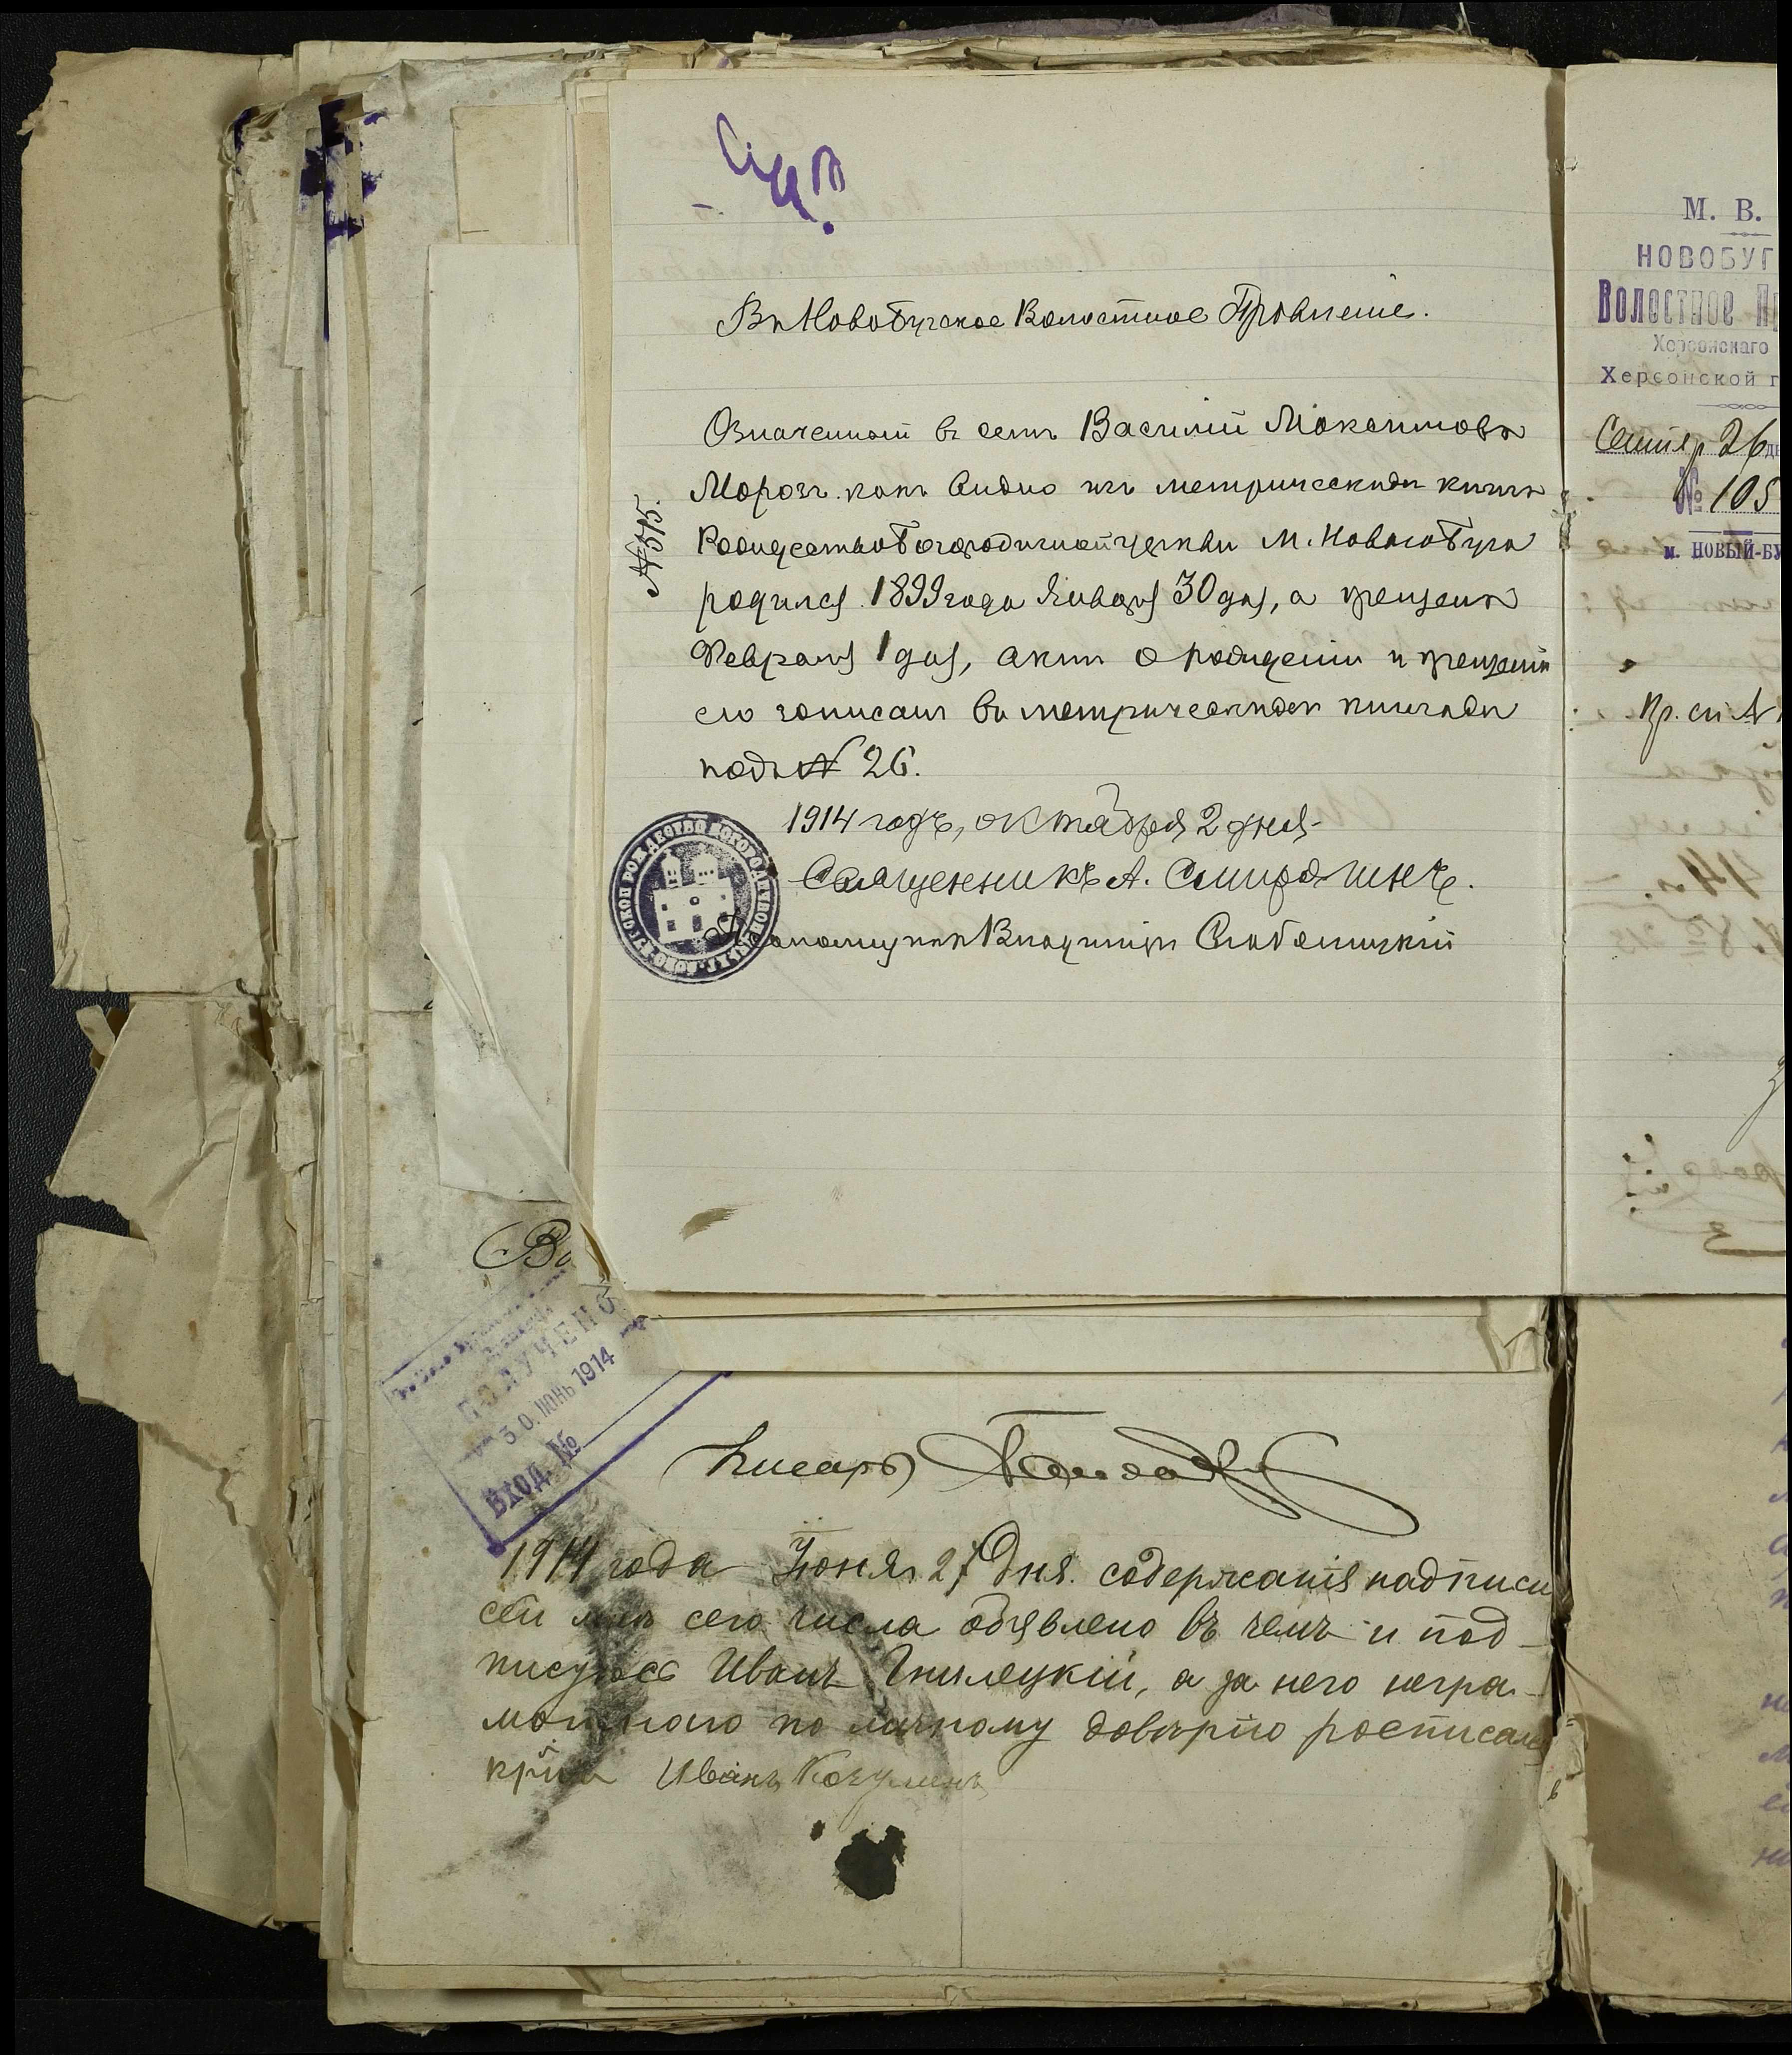 Въ Новобугское Волостное Правленіе.
Означенный въ семъ Василій Максимовъ
Морозъ какъ видно изъ метрическихъ книгъ
Рождество Богородичной церкви м. Новаго Буга
родился 1899 года Января 30 дня, а крещенъ
Февраля 1 дня, актъ о рожденіи и крещеніи
его записанъ въ метрическихъ книгахъ
подъ № 26.
№ 575.
1914 годъ, октября 2 дня
Священникъ А.
Псаломщикъ Владиміръ
М. В.
НОВОБУГ
Волостное П
Херсонскаго
Херсонской г
Сентяр 26
№ 105
м. НОВЫЙ-БУ
Во
ПОЛУЧЕНО
30. ІЮНЬ 1914
ВХОД. №
Писарь
1914 года Іюня 27 Дня. содержанія надписи
сей мнѣ сего числа объявлено въ чемъ и под-
писуюсь Иванъ Гнилецкій, а за него негра-
мотнаго по личному довѣрію росписался
Иванъ